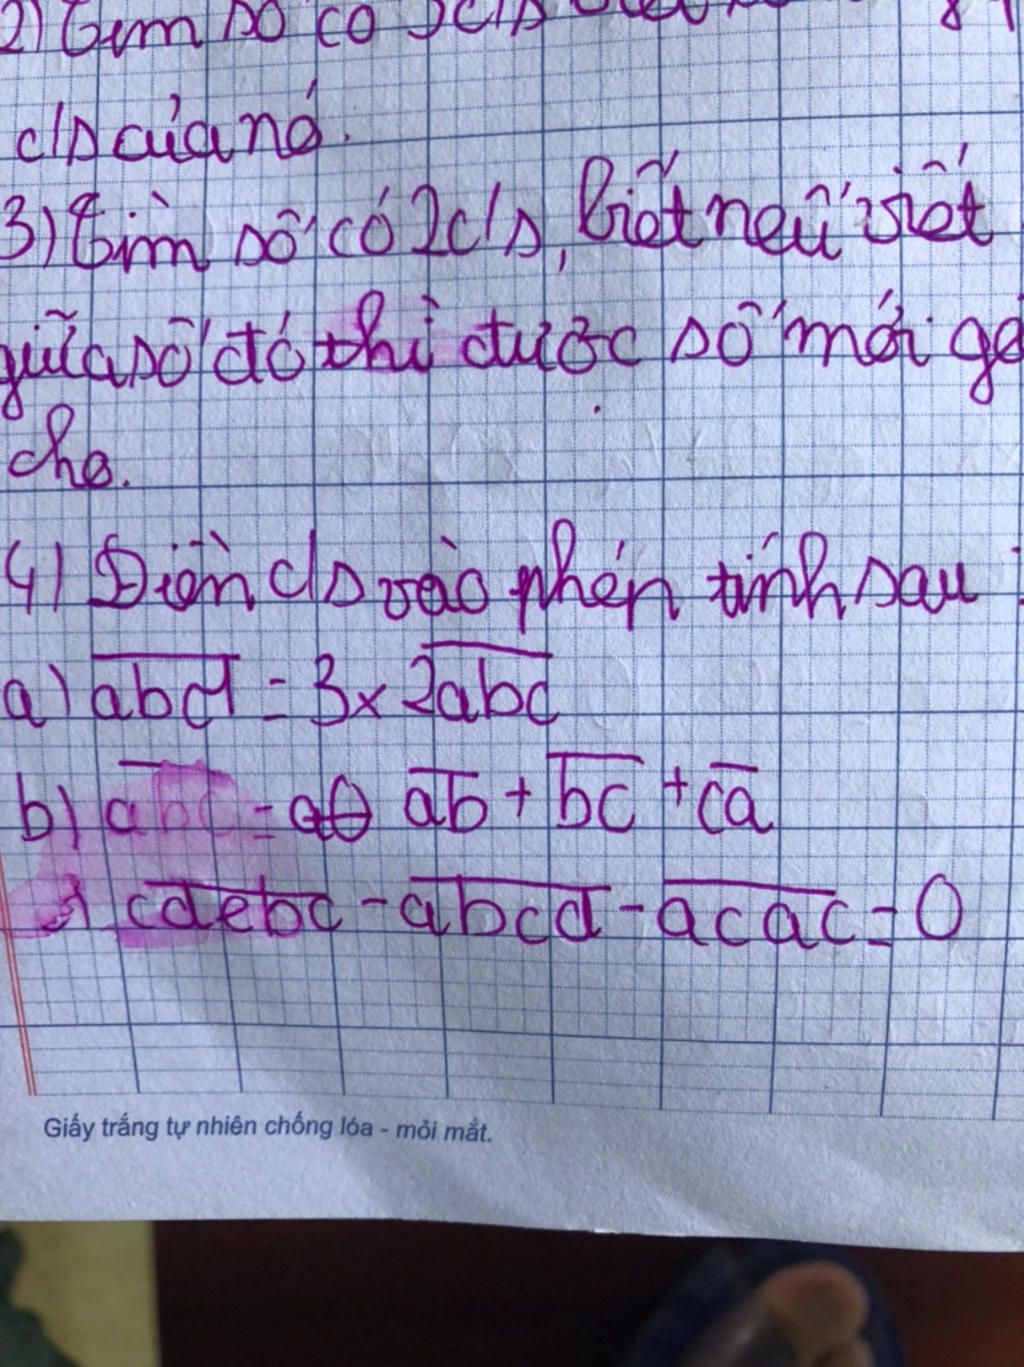 2) Tìm số có 3 c/s
c/s của nó.
3) Tìm số có 2 c/s, biết nếu viết
giữa số đó thì được số mới gấ
cho.
4) Điền c/s vào phép tính sau:
a) abcd = 3 x 2abc
b) abc = ab + bc + ca
cdebc - abcd - acac = 0
Giấy trắng tự nhiên chống lóa - mỏi mắt.